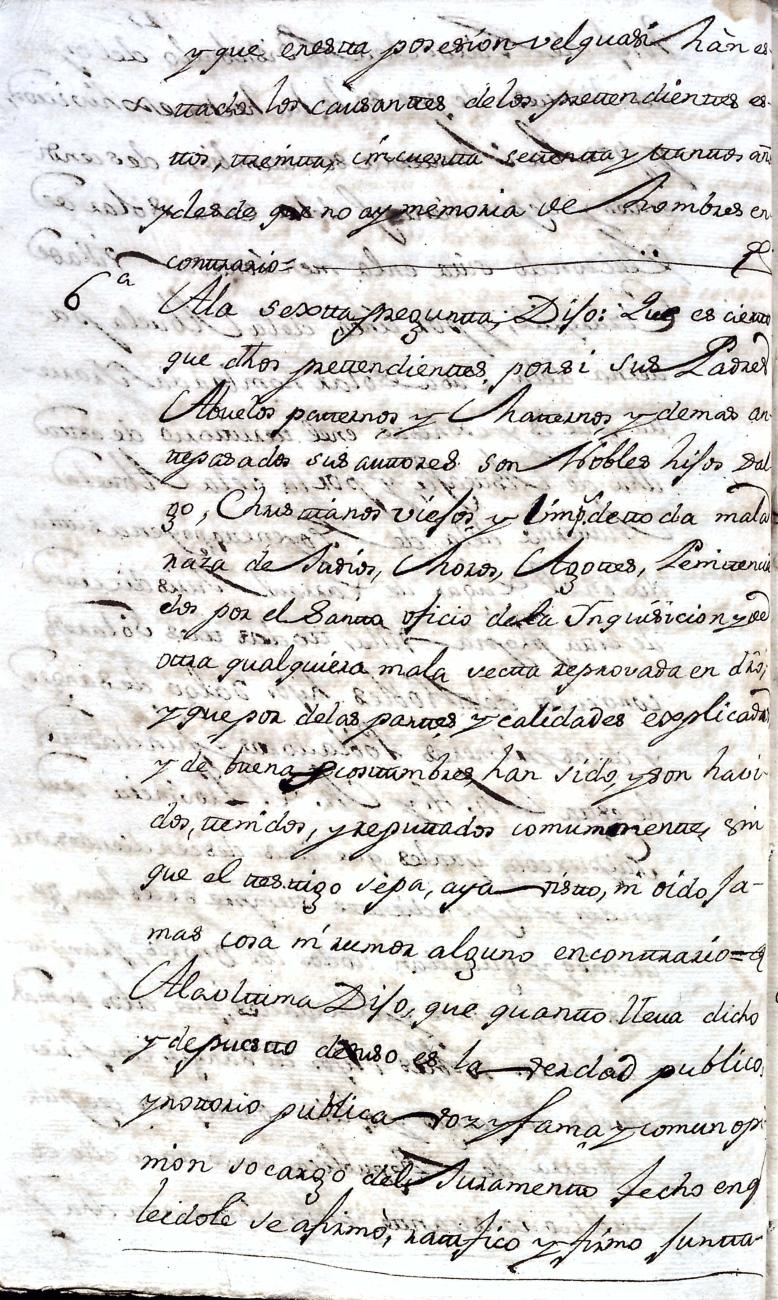 y que enestta posesion vel quasi hàn es
ttado los causanttes delos prettendienttes es
ttos, ttreintta, cincuentta settentta y ttanttos añ
y desde que no ay memoria de hombres en
conttrario=
6ª Ala sextta preguntta, Diso: Que es cierto
que dhos prettendienttes, porsi sus Padres
Abuelos patternos y Matternos y demas an
ttepasados sus auttores son Nobles hisos dal
go, Christtianos viesos, y Limp.s detto da mala
raza de Judios, Moros, Agottes, Penittencia
dos por el Santto oficio de la Inquisicion y de
ottra qualquiera mala sectta reprovada en dro;
y que por de las parttes y calidades explicadas
y de buenas costtumbres, han sido, y son havi-
dos, ttenidos, y reputtados comunmentte, sin
que el testtigo sepa, aya visto, ni oido Ja-
mas cosa ni rumor alguno enconttrario=
Ala ulttima Diso, que quantto lleva dicho
y depuestto desuso es la verdad publico,
y nottorio publica voz y fama y comun opi
nion so cargo del Juramentto fecho enq
leidole se afirmó, rattifico y firmo juntta-